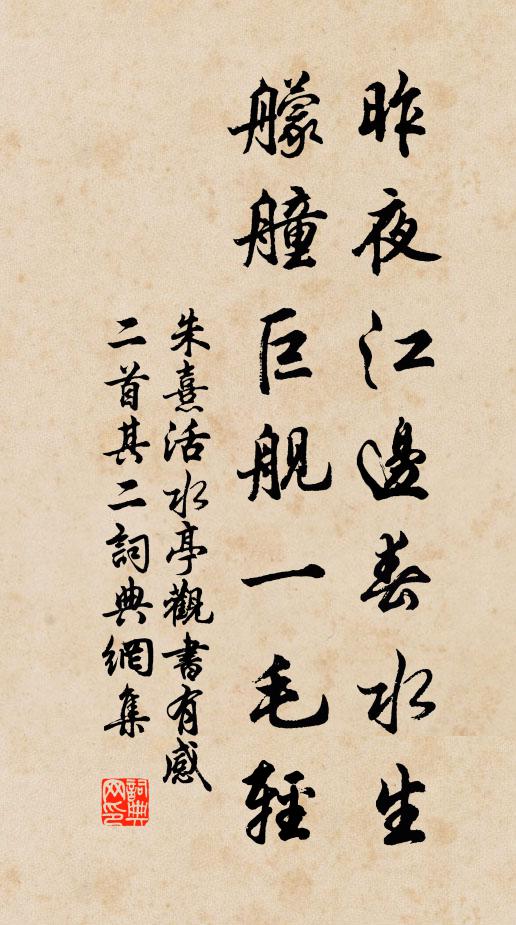 昨夜江邊春水生
艨艟巨舰一毛輕
朱熹活水亭觀書有感
二首其二詞典網集
詞典网印